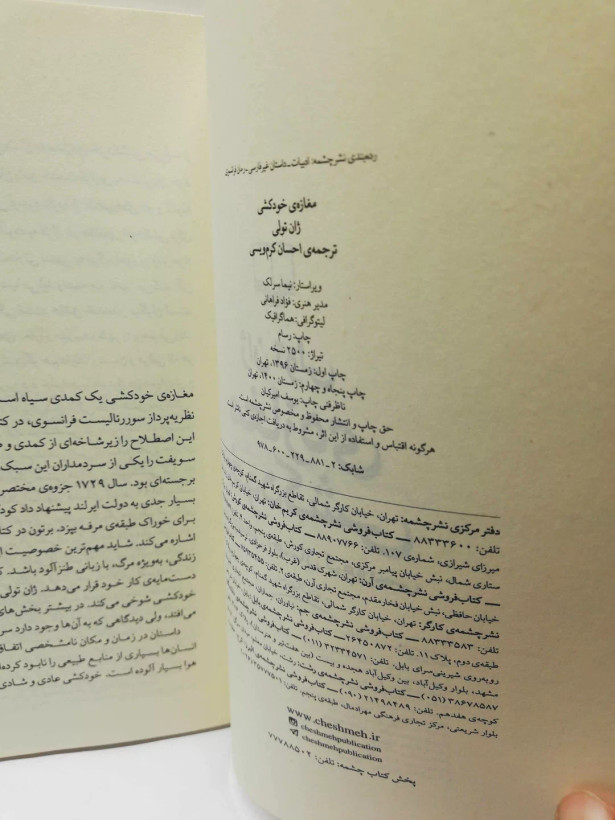 رده‌بندی نشرچشمه: ادبیات ـ داستان غیرفارسی ـ رمان فرانسوی
مغازه‌ی خودکشی
ژان تولی
ترجمه‌ی احسان کرم‌ویسی
ویراستار: نیما سرلک
مدیر هنری: فؤاد فراهانی
لیتوگرافی: هماگرافیک
چاپ: رسام
تیراژ: ۲۵۰۰ نسخه
چاپ اول: زمستان ۱۳۹۶، تهران
چاپ پنجاه و چهارم: زمستان ۱۴۰۰، تهران
ناظر فنی چاپ: یوسف امیرکیان
حق چاپ و انتشار محفوظ و مخصوص نشرچشمه است
هرگونه اقتباس و استفاده از این اثر، مشروط به دریافت اجازه‌ی کتبی ناشر است
شابک: ۲ـ۸۸۱ـ۲۲۹ـ۶۰۰ـ۹۷۸
دفتر مرکزی نشرچشمه: تهران، خیابان کارگر شمالی، تقاطع بزرگراه شهید گمنام، کوچه‌ی چهارم
تلفن: ۸۸۳۳۳۶۰۰ ــ کتاب‌فروشی نشرچشمه‌ی کریم‌خان: تهران، خیابان کریم‌خان
میرزای شیرازی، شماره‌ی ۱۰۷. تلفن: ۸۸۹۰۷۷۶۶ ــ کتاب‌فروشی نشرچشمه‌ی کورش:
ستاری شمال، نبش خیابان پیامبر مرکزی، مجتمع تجاری کورش، طبقه‌ی پنجم، واحد
ــ کتاب‌فروشی نشرچشمه‌ی آرن: تهران، شهرک قدس (غرب)، بلوار فرحزادی
خیابان حافظی، نبش خیابان فخار مقدم، مجتمع تجاری آرن، طبقه‌ی
نشرچشمه‌ی کارگر: تهران، خیابان کارگر شمالی، تقاطع بزرگراه شهید گمنام، کوچه‌ی
تلفن: ۸۸۳۳۳۵۸۳ ــ کتاب‌فروشی نشرچشمه‌ی جم: نیاوران، جماران،
طبقه‌ی دوم، پلاک ۱۱. تلفن: ۲۶۴۵۰۸۷۲ ــ کتاب‌فروشی نشرچشمه‌ی بابل:
روبه‌روی شیرینی‌سرای بابل. تلفن: ۳۲۳۳۴۵۷۱ (۰۱۱) ــ کتاب‌فروشی
مشهد، بلوار وکیل‌آباد، بین وکیل‌آباد هجده و بیست (بین هفت‌تیر و هنرستان)
۳۸۶۷۸۵۸۷ (۰۵۱) ــ کتاب‌فروشی نشرچشمه‌ی رشت: رشت، خیابان
کوچه‌ی هفدهم. تلفن: ۲۱۴۹۸۴۸۹ (۰۹۰) ــ کتاب‌فروشی نشرچشمه‌ی البرز:
بلوار شریعتی، مرکز تجاری فرهنگی مهرادمال، طبقه‌ی پنجم. تلفن:
www.cheshmeh.ir
cheshmehpublication
chesmehpublication
پخش کتاب چشمه: تلفن: ۷۷۷۸۸۵۰۲
مغازه‌ی خودکشی یک کمدی سیاه اس
نظریه‌پرداز سوررئالیست فرانسوی، در کت
این اصطلاح را زیرشاخه‌ای از کمدی و
سویفت را یکی از سردمداران این سبک
برجسته‌ای بود. سال ۱۷۲۹ جزوه‌ی مختصر
بسیار جدی به دولت ایرلند پیشنهاد داد کود
برای خوراک طبقه‌ی مرفه بپزد. برتون در کتا
اشاره می‌کند. شاید مهم‌ترین خصوصیت
زندگی، به‌ویژه مرگ، با زبانی طنزآلود باشد.
دست‌مایه‌ی کار خود قرار می‌دهد. ژان تولی
خودکشی شوخی می‌کند. در بیشتر بخش‌های
می‌افتد، ولی دیدگاهی که به آن‌ها وجود دارد سر
داستان در زمان و مکان نامشخصی اتفاق
انسان‌ها بسیاری از منابع طبیعی را نابود کرده
هوا بسیار آلوده است. خودکشی عادی و شادی